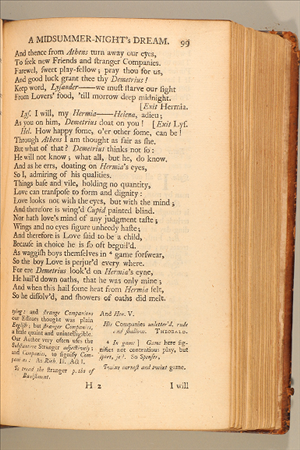 A MIDSUMMER-NIGHT'S DREAM. 99
And thence from Athens turn away our eyes,
To seek new Friends and strange Companies.
Farewel, sweet play-fellow; pray thou for us,
And good luck grant thee thy Demetrius!
Keep word, Lysander——we must starve our sight
From Lovers' food, 'till morrow deep midnight.
[Exit Hermia.
Lys. I will, my Hermia——Helena, adieu;
As you on him, Demetrius doat on you! [Exit Lys.
Hel. How happy some, o'er other some, can be!
Through Athens I am thought as fair as she.
But what of that? Demetrius thinks not so:
He will not know; what all, but he, do know.
And as he errs, doating on Hermia's eyes,
So I, admiring of his qualities.
Things base and vile, holding no quantity,
Love can transpose to form and dignity:
Love looks not with the eyes, but with the mind;
And therefore is wing'd Cupid painted blind.
Nor hath love's mind of any judgment taste;
Wings and no eyes figure unheedy haste;
And therefore is Love said to be a child,
Because in choice he is so oft beguil'd.
As waggish boys themselves in * game forswear,
So the boy Love is perjur'd every where.
For ere Demetrius look'd on Hermia's eyne,
He hail'd down oaths, that he was only mine;
And when this hail some heat from Hermia felt,
So he dissolv'd, and showers of oaths did melt.
tying: and strange Companions
our Editors thought was plain
English; but stranger Companies,
a little quaint and unintelligible.
Our Author very often uses the
Substantive Stranger adjectively;
and Companies, to signify Com-
panions: As Rich. II. Act 1.
To tread the stranger paths of
Banishment.
And Hen. V.
His Companies unletter'd, rude
and shallow. THEOBALD.
* In game] Game here sig-
nifies not contentious play, but
sport, jest. So Spenser,
'Twixt earnest and 'twixt game.
H 2 I will